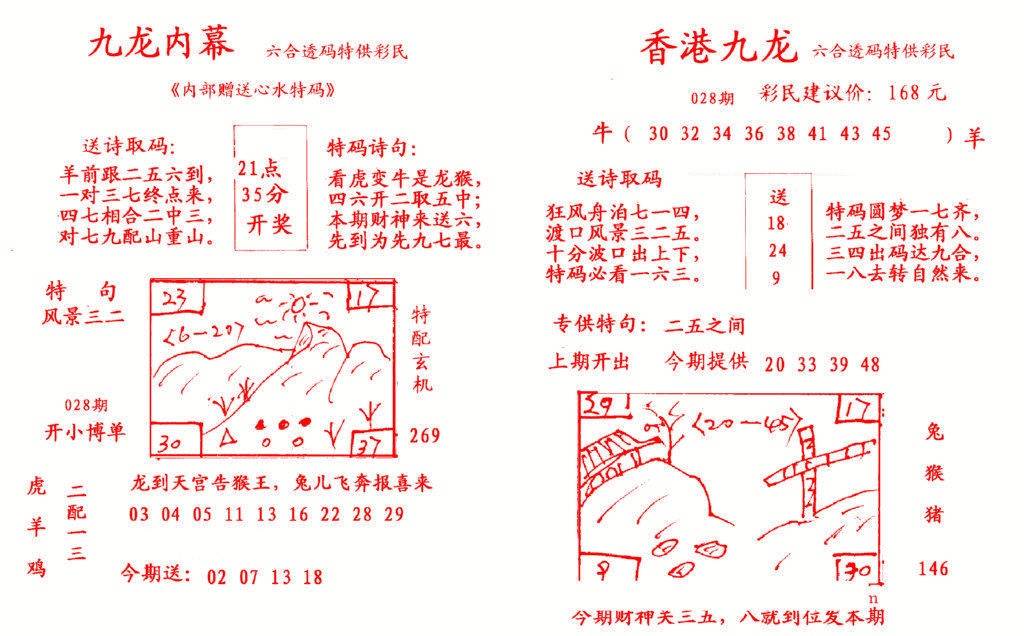 九龙内幕 六合透码特供彩民
《内部赠送心水特码》
送诗取码：
羊前跟二五六到，
一对三七终点来，
四七相合二中三，
对七九配山重山。
21点
35分
开奖
特码诗句：
看虎变牛是龙猴，
四六开二取五中；
本期财神来送六，
先到为先九七最。
特 句
风景三二
028期
开小博单
23
17
<6-20>
30
37
特配玄机
269
虎羊鸡
二配一三
龙到天宫告猴王，兔儿飞奔报喜来
03 04 05 11 13 16 22 28 29
今期送：02 07 13 18
香港九龙 六合透码特供彩民
028期 彩民建议价：168元
牛（ 30 32 34 36 38 41 43 45 ）羊
送诗取码
狂风舟泊七一四，
渡口风景三二五。
十分波口出上下，
特码必看一六三。
送
18
24
9
特码圆梦一七齐，
二五之间独有八。
三四出码达九合，
一八去转自然来。
专供特句：二五之间
上期开出 今期提供 20 33 39 48
29
17
<20-45>
9
兔
猴
猪
146
n
今期财神关三五，八就到位发本期